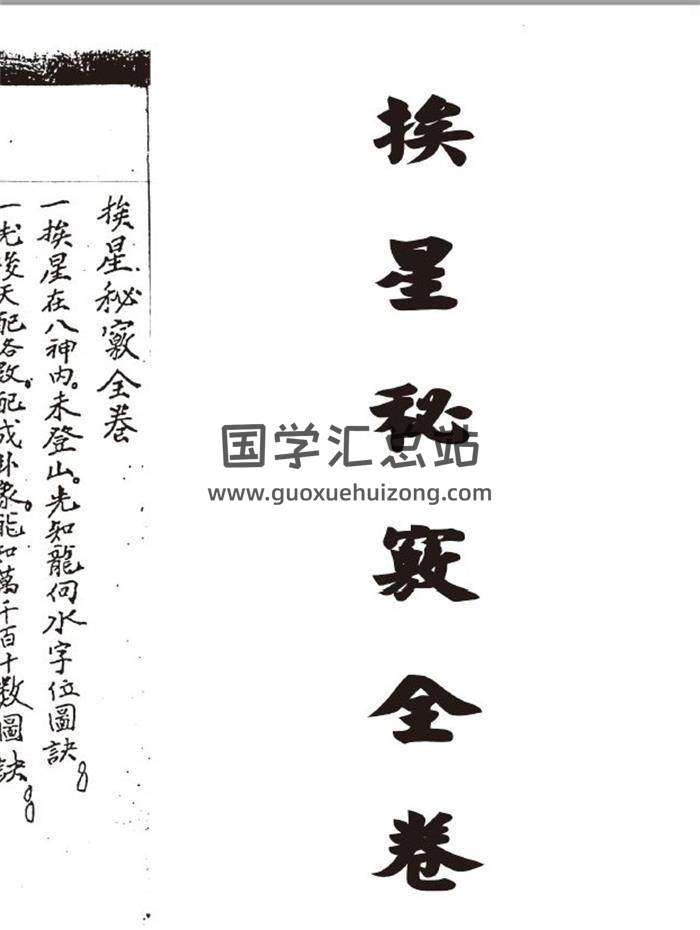 挨星秘竅全卷
挨星秘竅全卷
一挨星在八神内。未登山。先知龍何水字位圖訣。
一先後天配各数。配成卦象。能知萬千百十数圖訣。
国学汇总站
www.guoxuehuizong.com